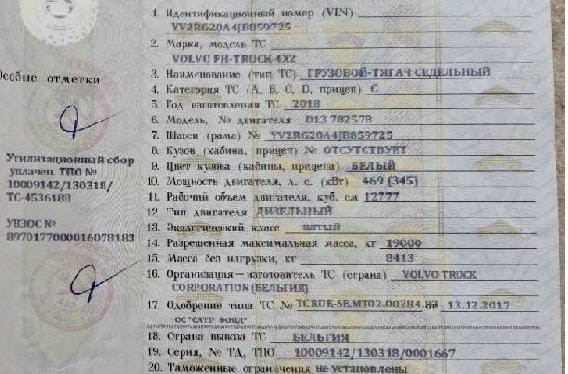 1. Идентификационный номер (VIN)
YV2RG20A4JB859725
2. Марка, модель ТС
VOLVO FH-TRUCK 4X2
Особые отметки
3. Наименование (тип ТС) ГРУЗОВОЙ-ТЯГАЧ СЕДЕЛЬНЫЙ
4. Категория ТС (A, B, C, D, прицеп) C
5. Год изготовления ТС 2018
6. Модель, № двигателя D13 782578
7. Шасси (рама) № YV2RG20A4JB859725
8. Кузов (кабина, прицеп) № ОТСУТСТВУЕТ
9. Цвет кузова (кабины, прицепа) БЕЛЫЙ
Утилизационный сбор
уплачен ТПО №
10009142/130318/
ТС-4536188
10. Мощность двигателя, л. с. (кВт) 469 (345)
11. Рабочий объем двигателя, куб. см 12777
12. Тип двигателя ДИЗЕЛЬНЫЙ
УВЭОС №
8970177000016078183
13. Экологический класс пятый
14. Разрешенная максимальная масса, кг 19000
15. Масса без нагрузки, кг 8413
16. Организация-изготовитель ТС (страна) VOLVO TRUCK
CORPORATION (БЕЛЬГИЯ)
17. Одобрение типа ТС № ТС RU E-SE.МТ02.00284. 13.12.2017
ОС "САТР-ФОНД"
18. Страна вывоза ТС БЕЛЬГИЯ
19. Серия, № ТД, ТПО 10009142/130318/0001667
20. Таможенные ограничения не установлены